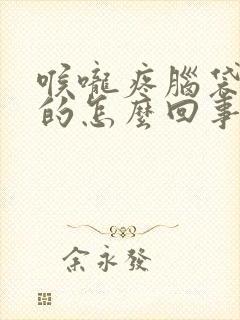 喉嚨疼腦袋
的怎麼回事
余永發